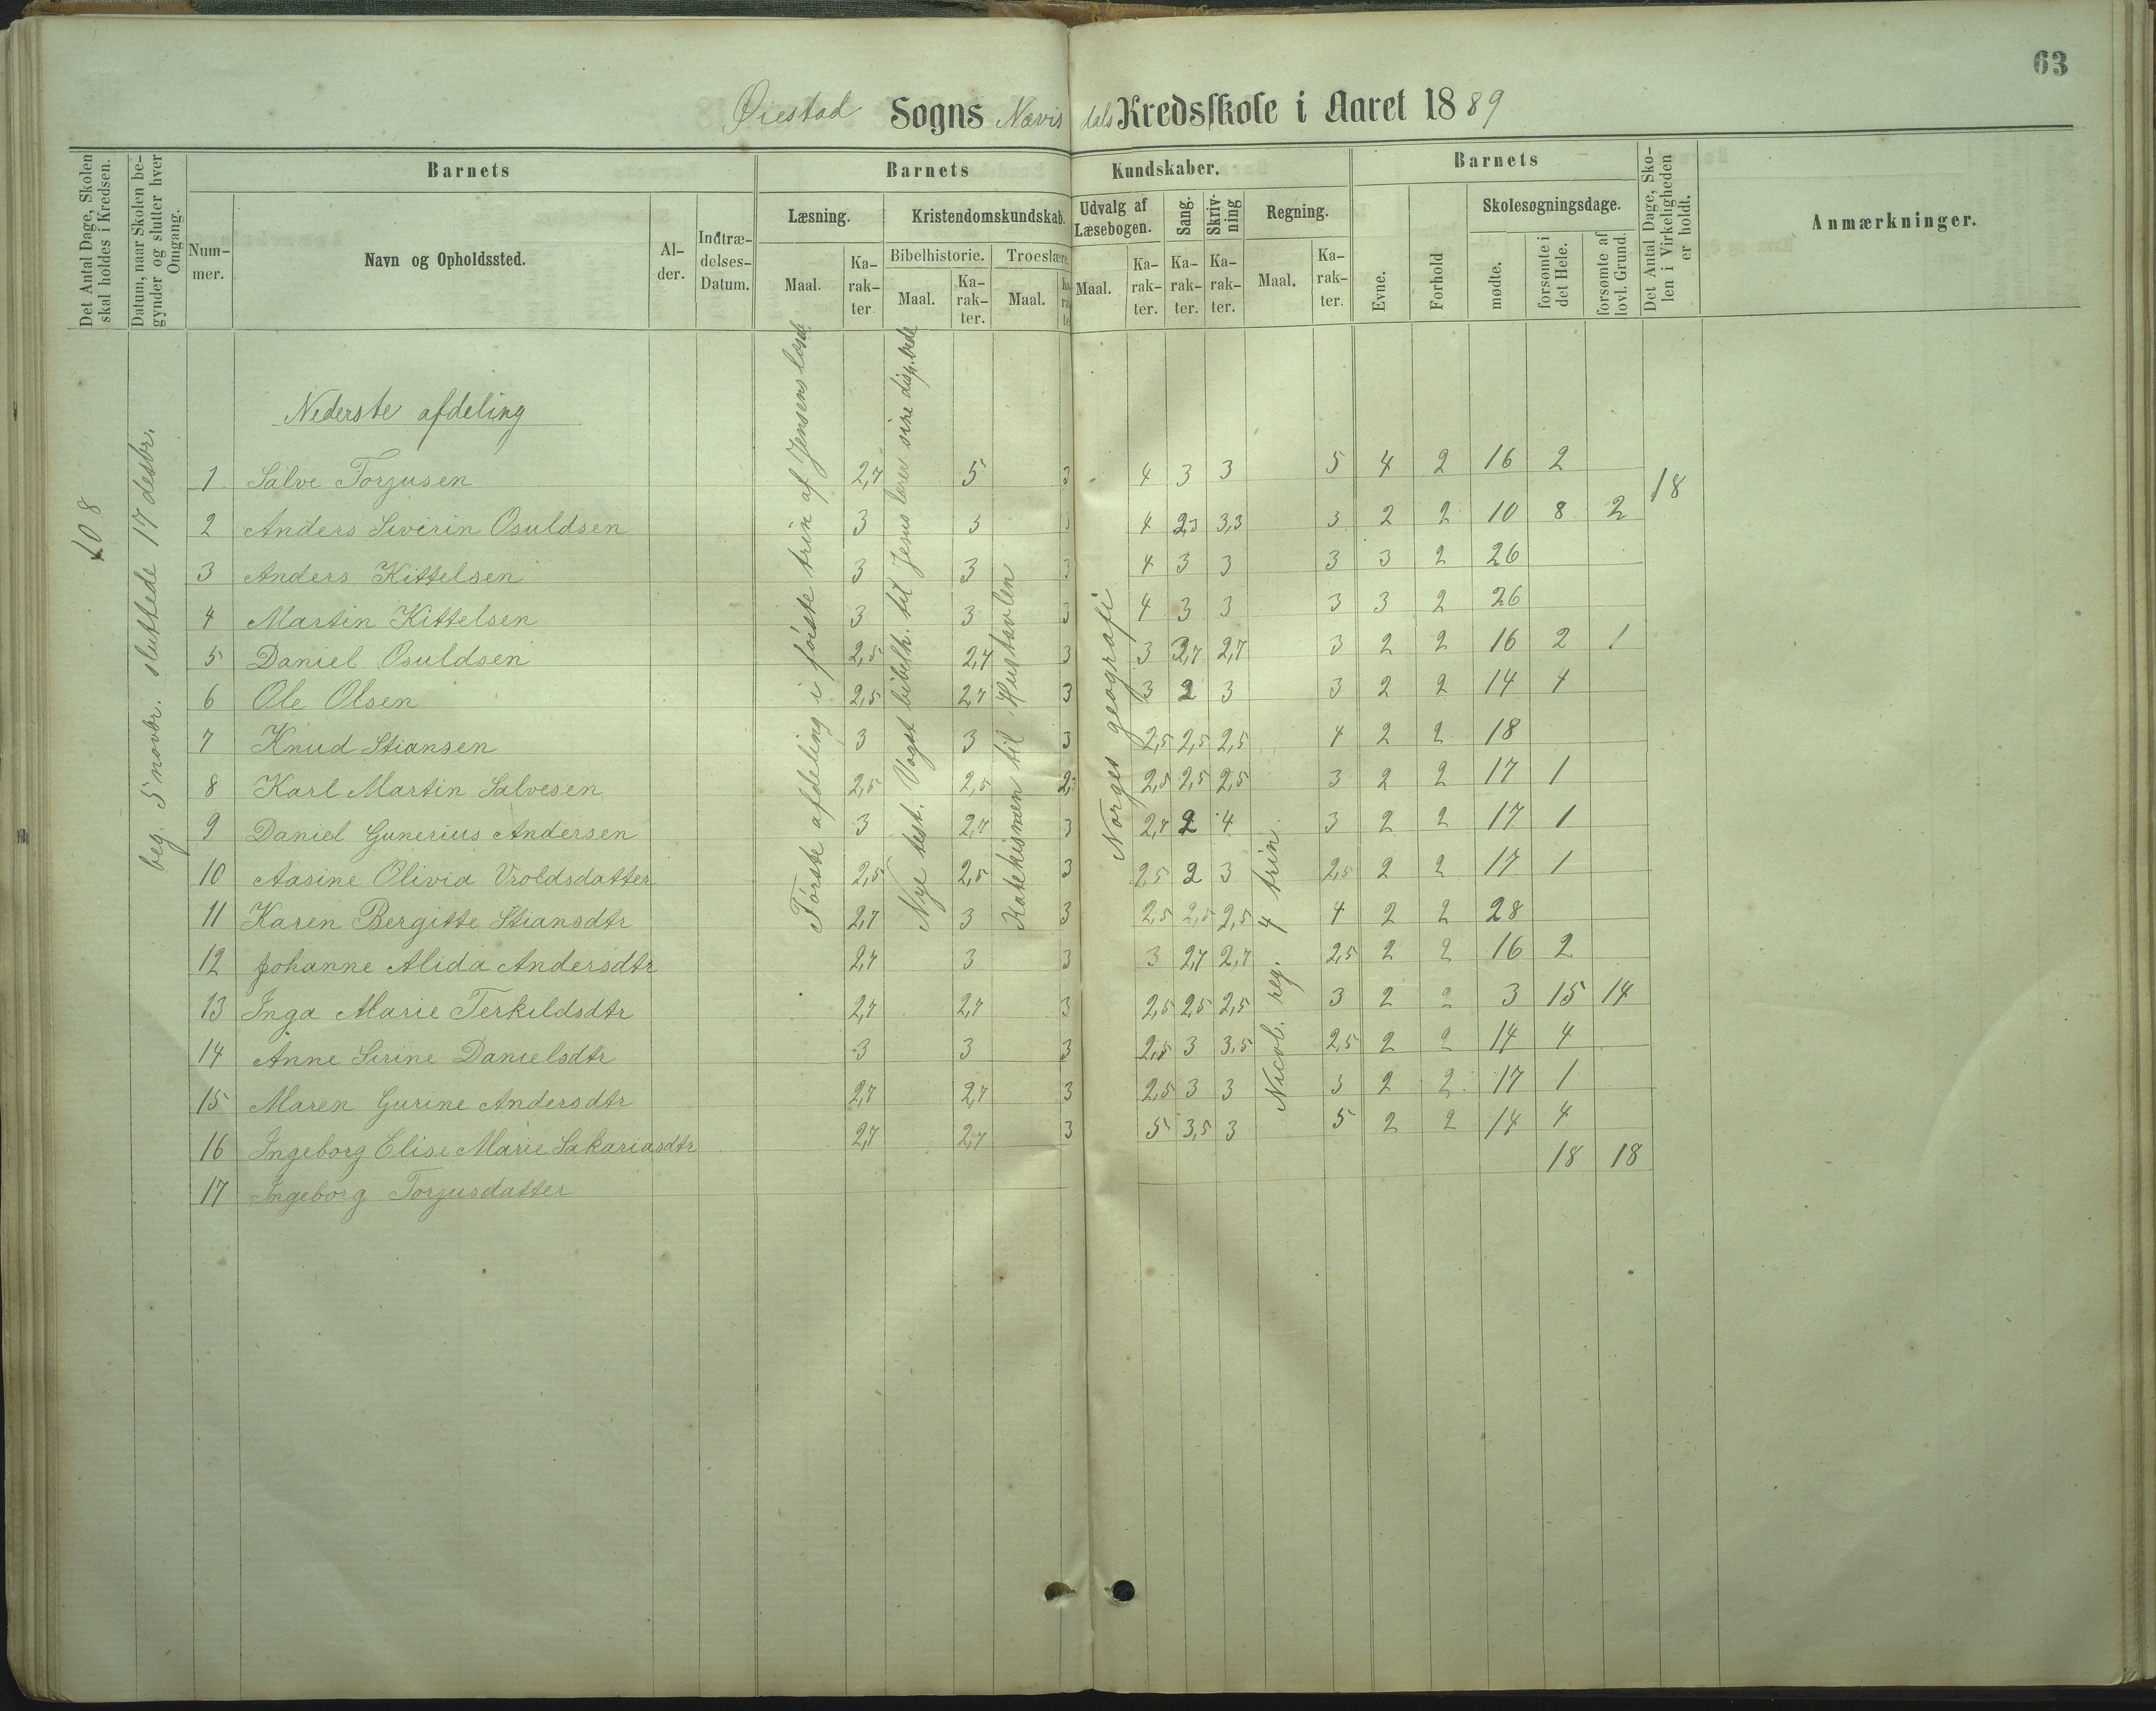 63
Øiestad Sogns Nævisdals Kredsskole i Aaret 1889
Det Antal Dage, Skolen skal holdes i Kredsen.
Datum, naar Skolen begynder og slutter hver Omgang.
Barnets
Barnets Kundskaber.
Barnets
Det Antal Dage, Skolen i Virkeligheden er holdt.
Anmærkninger.
Nummer.
Navn og Opholdssted.
Alder.
Indtrædelses-Datum.
Læsning.
Kristendomskundskab.
Udvalg af Læsebogen.
Sang.
Skrivning
Regning.
Evne.
Forhold
Skolesøgningsdage.
Bibelhistorie.
Troeslære.
Maal. Karakter
Maal. Karakter.
Maal.
Maal. Karakter. Karakter. Karakter.
Maal. Karakter.
mødte.
forsømte i det Hele.
forsømte af lovl. Grund.
108
beg. 5 novbr. sluttede 17 desbr.
Nederste afdeling
Første afdeling i første trin af Jensens læseb.
Nye test. Vogst bibelh. til Jesus lærer sine disp. bede
Katekismen til Hustavlen
Norges geografi
Nicol. reg. 4 trin
18
1 Salve Torjusen 2,7 5 3 4 3 3 5 4 2 16 2
2 Anders Severin Osuldsen 3 3 3 4 2,3 3,3 3 2 2 10 8 2
3 Anders Kittelsen 3 3 3 4 3 3 3 3 2 26
4 Martin Kittelsen 3 3 3 4 3 3 3 3 2 26
5 Daniel Osuldsen 2,5 2,7 3 3 2,7 2,7 3 2 2 16 2 1
6 Ole Olsen 2,5 2,7 3 3 2 3 3 2 2 14 4
7 Knud Stiansen 3 3 3 2,5 2,5 2,5 4 2 2 18
8 Karl Martin Salvesen 2,5 2,5 2, 2,5 2,5 2,5 3 2 2 17 1
9 Daniel Gunerius Andersen 3 2,7 3 2,7 2 4 3 2 2 17 1
10 Aasine Olivia Vroldsdatter 2,5 2,5 3 2,5 2 3 2,5 2 2 17 1
11 Karen Bergitte Stiansdtr 2,7 3 3 2,5 2,5 2,5 4 2 2 28
12 Johanne Alida Andersdtr 2,7 3 3 3 2,7 2,7 2,5 2 2 16 2
13 Inga Marie Terkildsdtr 2,7 2,7 3 2,5 2,5 2,5 3 2 2 3 15 14
14 Anne Serine Danielsdtr 3 3 3 2,5 3 3,5 2,5 2 2 14 4
15 Maren Gurine Andersdtr 2,7 2,7 3 2,5 3 3 3 2 2 17 1
16 Ingeborg Elise Marie Sakariasdtr 2,7 2,7 3 5 3,5 3 5 2 2 14 4
17 Ingeborg Torjusdatter 18 18